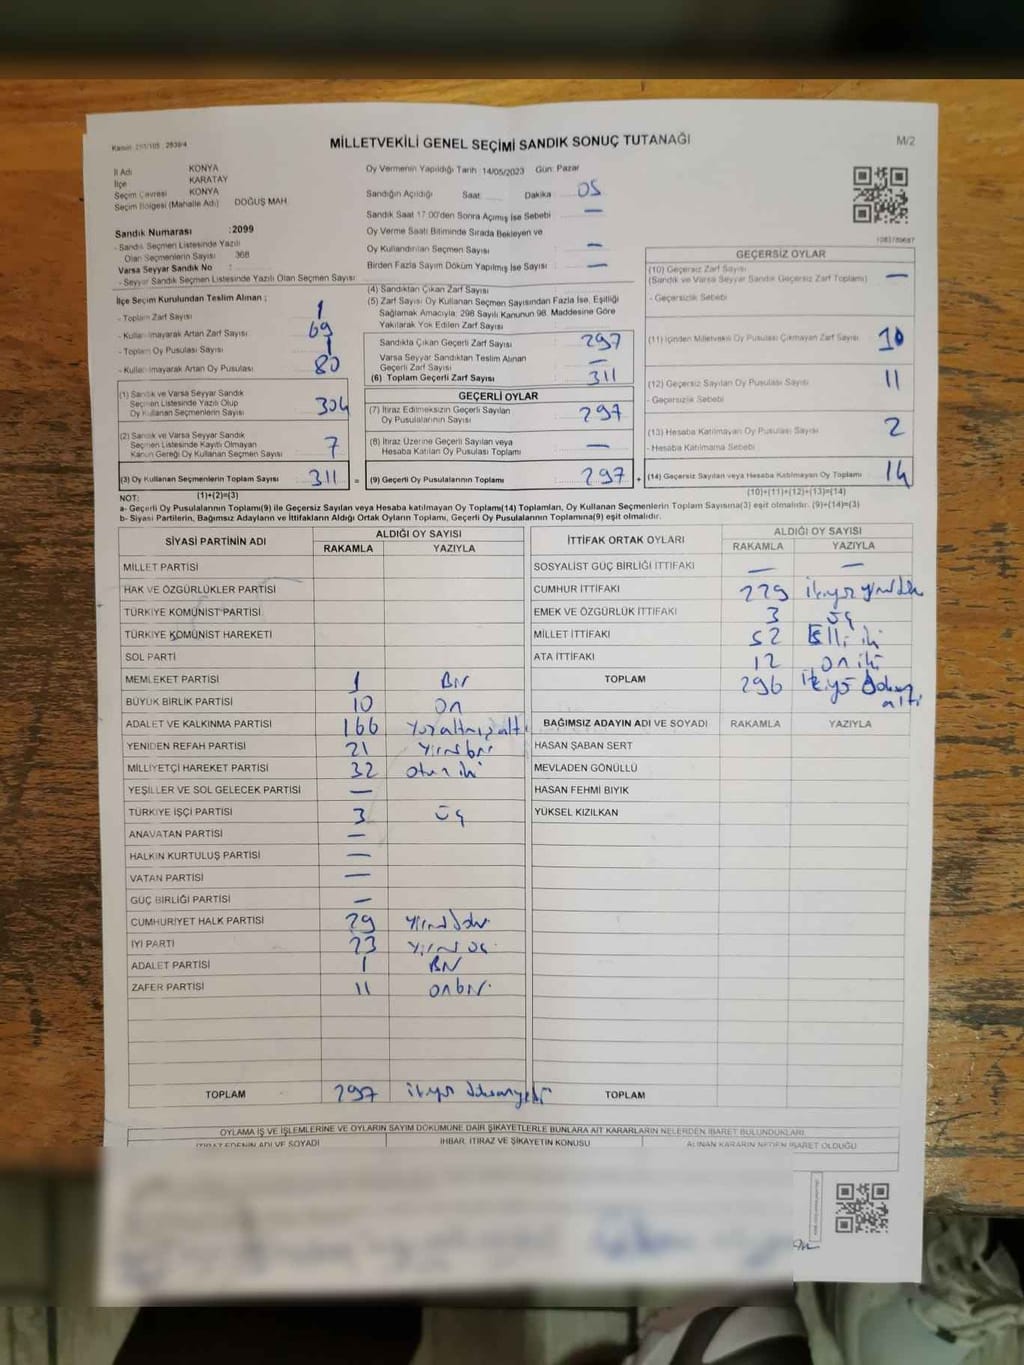 MİLLETVEKİLİ GENEL SEÇİMİ SANDIK SONUÇ TUTANAĞI
M/2
İl Adı KONYA
İlçe KARATAY
Seçim Çevresi KONYA
Seçim Bölgesi (Mahalle Adı) DOĞUŞ MAH.
Oy Vermenin Yapıldığı Tarih 14/05/2023 Gün: Pazar
Sandığın Açıldığı Saat Dakika 05
Sandık Saat 17.00'den Sonra Açılmış İse Sebebi —
Oy Verme Saati Bitiminde Sırada Bekleyen ve
Oy Kullandırılan Seçmen Sayısı —
Birden Fazla Sayım Döküm Yapılmış İse Sayısı —
Sandık Numarası :2099
- Sandık Seçmen Listesinde Yazılı
Olan Seçmenlerin Sayısı 368
Varsa Seyyar Sandık No :
- Seyyar Sandık Seçmen Listesinde Yazılı Olan Seçmen Sayısı:
İlçe Seçim Kurulundan Teslim Alınan ;
- Toplam Zarf Sayısı 1
- Kullanılmayarak Artan Zarf Sayısı 69
- Toplam Oy Pusulası Sayısı 1
- Kullanılmayarak Artan Oy Pusulası 80
(1) Sandık ve Varsa Seyyar Sandık
Seçmen Listesinde Yazılı Olup
Oy Kullanan Seçmenlerin Sayısı 304
(2) Sandık ve Varsa Seyyar Sandık
Seçmen Listesinde Kayıtlı Olmayan
Kanun Gereği Oy Kullanan Seçmen Sayısı 7
(3) Oy Kullanan Seçmenlerin Toplam Sayısı 311 =
(4) Sandıktan Çıkan Zarf Sayısı
(5) Zarf Sayısı Oy Kullanan Seçmen Sayısından Fazla İse, Eşitliği
Sağlamak Amacıyla; 298 Sayılı Kanunun 98. Maddesine Göre
Yakılarak Yok Edilen Zarf Sayısı
Sandıkta Çıkan Geçerli Zarf Sayısı 297
Varsa Seyyar Sandıktan Teslim Alınan
Geçerli Zarf Sayısı —
(6) Toplam Geçerli Zarf Sayısı 311
GEÇERLİ OYLAR
(7) İtiraz Edilmeksizin Geçerli Sayılan
Oy Pusulalarının Sayısı 297
(8) İtiraz Üzerine Geçerli Sayılan veya
Hesaba Katılan Oy Pusulası Toplamı —
(9) Geçerli Oy Pusulalarının Toplamı 297 +
GEÇERSİZ OYLAR
(10) Geçersiz Zarf Sayısı
(Sandık ve Varsa Seyyar Sandık Geçersiz Zarf Toplamı) —
- Geçersizlik Sebebi
(11) İçinden Milletvekili Oy Pusulası Çıkmayan Zarf Sayısı 10
(12) Geçersiz Sayılan Oy Pusulası Sayısı 11
- Geçersizlik Sebebi
(13) Hesaba Katılmayan Oy Pusulası Sayısı 2
- Hesaba Katılmama Sebebi
(14) Geçersiz Sayılan veya Hesaba Katılmayan Oy Toplamı 14
NOT: (1)+(2)=(3)
(10)+(11)+(12)+(13)=(14)
a- Geçerli Oy Pusulalarının Toplamı(9) ile Geçersiz Sayılan veya Hesaba Katılmayan Oy Toplamı(14) Toplamları, Oy Kullanan Seçmenlerin Toplam Sayısına(3) eşit olmalıdır. (9)+(14)=(3)
b- Siyasi Partilerin, Bağımsız Adayların ve İttifakların Aldığı Ortak Oyların Toplamı, Geçerli Oy Pusulalarının Toplamına(9) eşit olmalıdır.
SİYASİ PARTİNİN ADI ALDIĞI OY SAYISI
RAKAMLA YAZIYLA
MİLLET PARTİSİ
HAK VE ÖZGÜRLÜKLER PARTİSİ
TÜRKİYE KOMÜNİST PARTİSİ
TÜRKİYE KOMÜNİST HAREKETİ
SOL PARTİ
MEMLEKET PARTİSİ 1 Bir
BÜYÜK BİRLİK PARTİSİ 10 on
ADALET VE KALKINMA PARTİSİ 166 Yüzaltmışaltı
YENİDEN REFAH PARTİSİ 21 Yirmibir
MİLLİYETÇİ HAREKET PARTİSİ 32 otuz iki
YEŞİLLER VE SOL GELECEK PARTİSİ —
TÜRKİYE İŞÇİ PARTİSİ 3 üç
ANAVATAN PARTİSİ —
HALKIN KURTULUŞ PARTİSİ —
VATAN PARTİSİ —
GÜÇ BİRLİĞİ PARTİSİ —
CUMHURİYET HALK PARTİSİ 29
İYİ PARTİ 23 Yirmi üç
ADALET PARTİSİ 1 Bir
ZAFER PARTİSİ 11 onbir
TOPLAM 297
İTTİFAK ORTAK OYLARI ALDIĞI OY SAYISI
RAKAMLA YAZIYLA
SOSYALİST GÜÇ BİRLİĞİ İTTİFAKI — —
CUMHUR İTTİFAKI 229
EMEK VE ÖZGÜRLÜK İTTİFAKI 3 üç
MİLLET İTTİFAKI 52 Elli iki
ATA İTTİFAKI 12 on iki
TOPLAM 296
BAĞIMSIZ ADAYIN ADI VE SOYADI RAKAMLA YAZIYLA
HASAN ŞABAN SERT
MEVLADEN GÖNÜLLÜ
HASAN FEHMİ BIYIK
YÜKSEL KIZILKAN
TOPLAM
OYLAMA İŞ VE İŞLEMLERİNE VE OYLARIN SAYIM DÖKÜMÜNE DAİR ŞİKAYETLERLE BUNLARA AİT KARARLARIN NELERDEN İBARET BULUNDUKLARI
İTİRAZ EDENİN ADI VE SOYADI İHBAR, İTİRAZ VE ŞİKAYETİN KONUSU ALINAN KARARIN NEDEN İBARET OLDUĞU